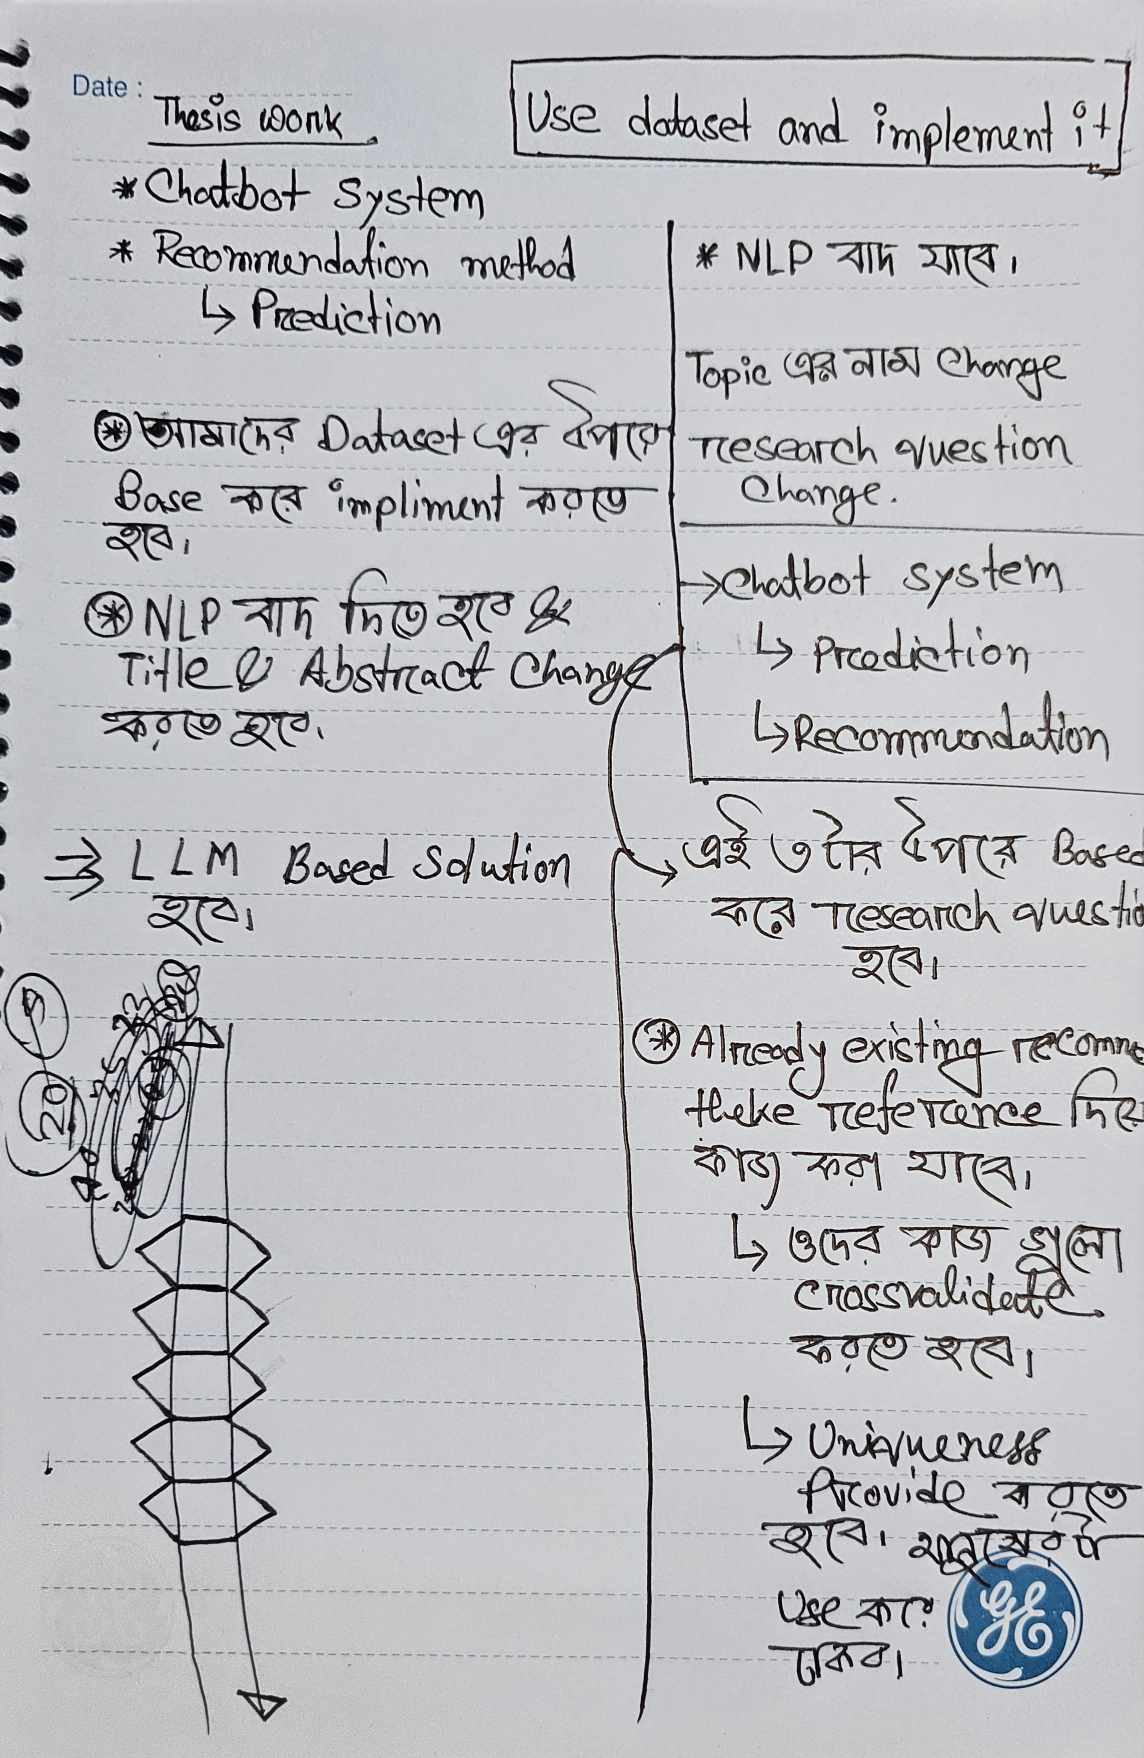 Date :
Thesis work
Use dataset and implement it
* Chatbot System
* Recommendation method
↳ Prediction
⊛ আমাদের Dataset এর উপরে
Base করে impliment করতে
হবে।
⊛ NLP বাদ দিতে হবে &
Title & Abstract Change
করতে হবে।
⇒ LLM Based Solution
হবে।
5
20
* NLP বাদ যাবে।
Topic এর নাম Change
research question
Change.
→ Chatbot system
↳ Prediction
↳ Recommendation
এই ৩ টার উপরে Based
করে research questio
হবে।
⊛ Already existing recomme
theke reference দিয়ে
কাজ করা যাবে।
↳ ওদের কাজ গুলো
crossvalidate
করতে হবে।
↳ Uniqueness
Provide করতে
হবে।
Use করে
GE